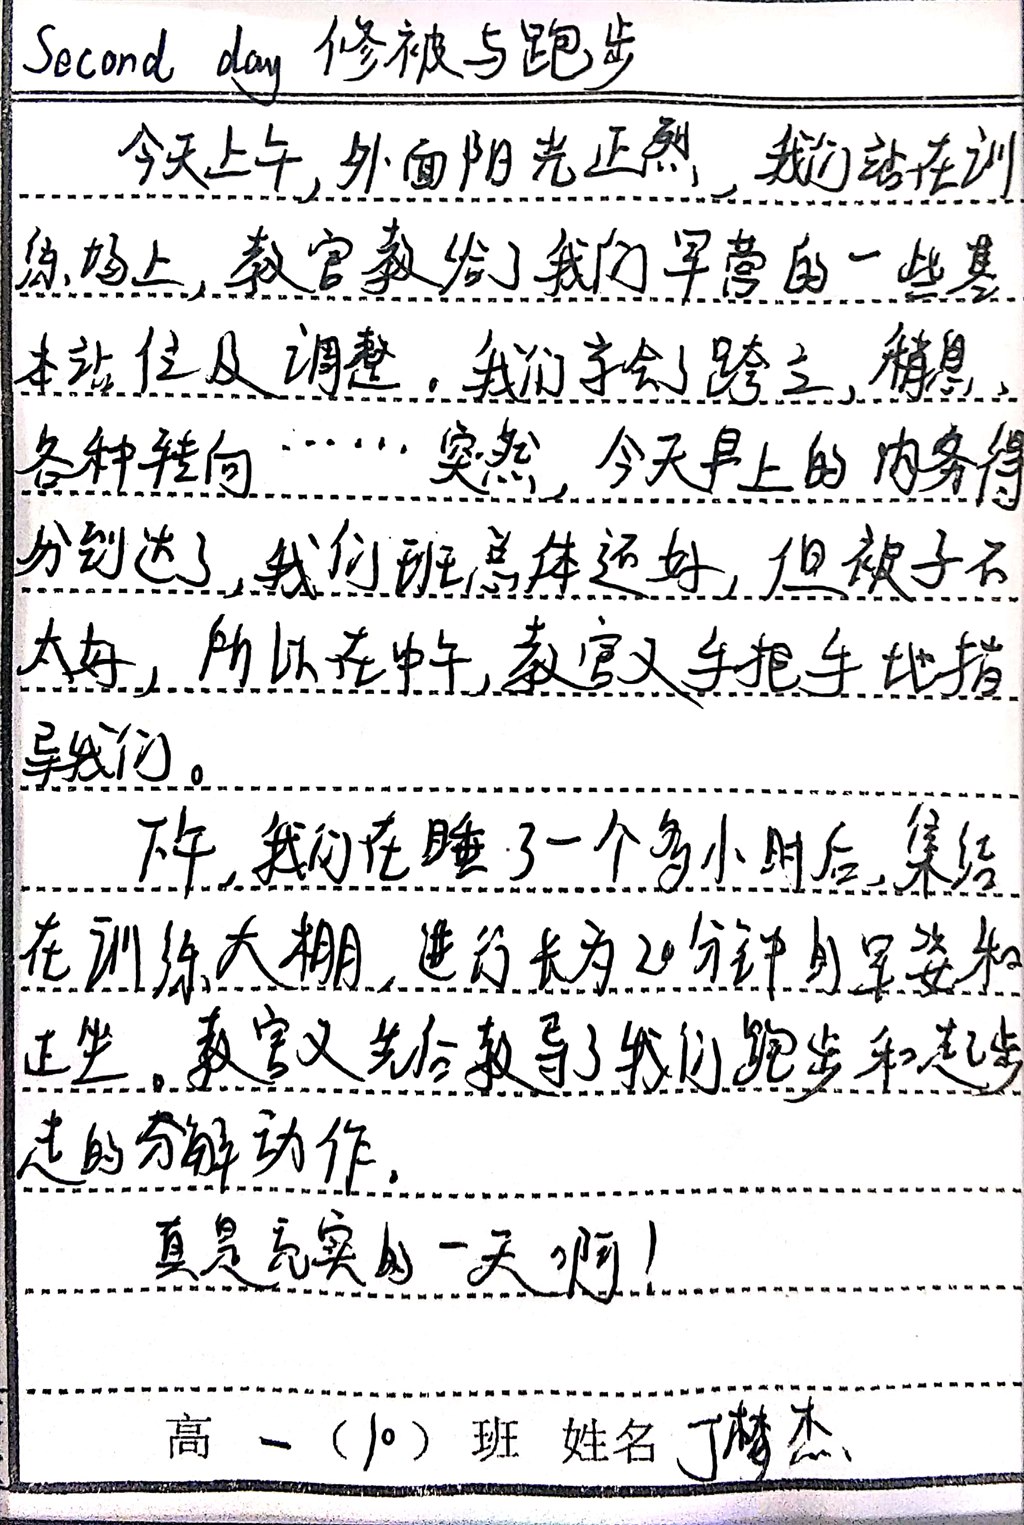 Second day 修被与跑步
今天上午,外面阳光正烈,我们站在训
练场上,教官教给了我们军营的一些基
本站位及调整。我们学会了跨立,稍息、
各种转向……突然,今天早上的内务得
分到达了,我们班总体还好,但被子不
太好,所以在中午,教官又手把手地指
导我们。
下午,我们在睡了一个多小时后,集结
在训练大棚,进行长为20分钟的军姿和
正坐。教官又先后教导了我们跑步和起步
走的分解动作.
真是充实的一天啊!
高一(10)班 姓名丁梦杰